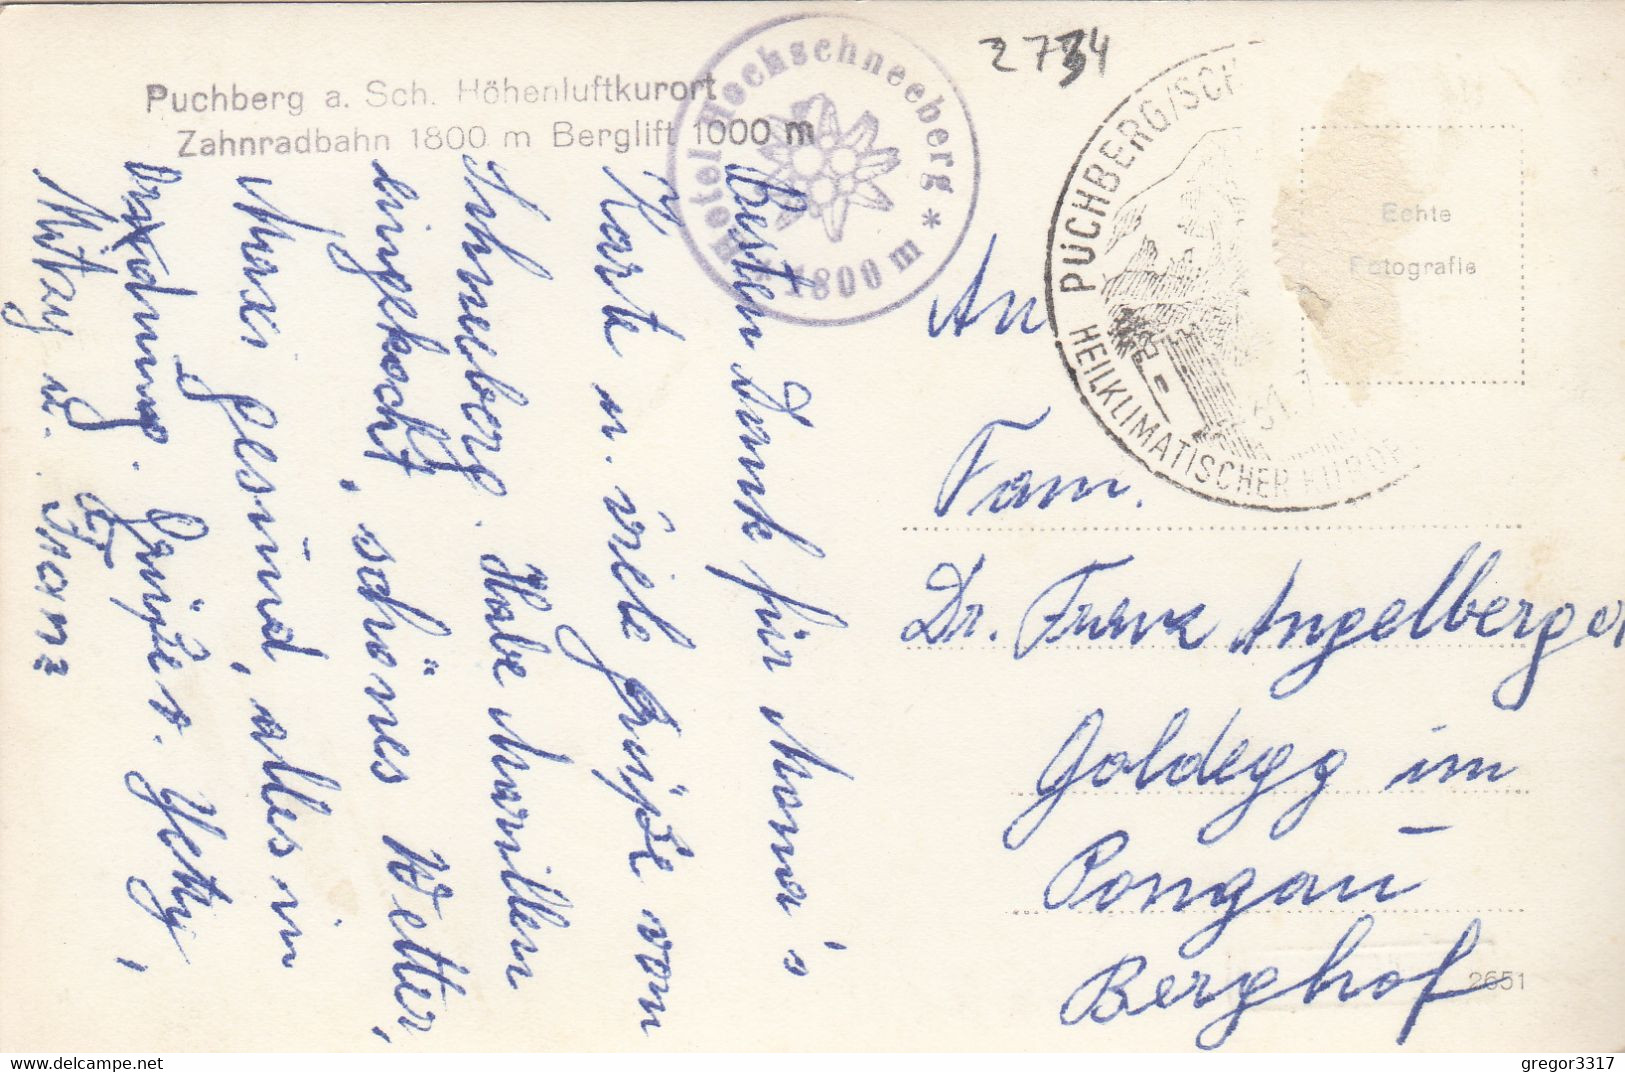 2734
Puchberg a. Sch. Höhenluftkurort
Zahnradbahn 1800 m Berglift 1000 m
Hotel Hochschneeberg * 1800 m
PUCHBERG/SCH
HEILKLIMATISCHER KUROR
Echte
Fotografie
Besten Dank für Mama's
Karte u. viele Grüße vom
Schneeberg. Habe Marillen
eingekocht, schönes Wetter,
Maxi gesund, alles in
Ordnung. Grüße Hetty,
Mitzy u. Franz
An
Fam.
Dr. Franz Angelberger
Goldegg im
Pongau
Berghof
2651
delcampe.net
gregor3317